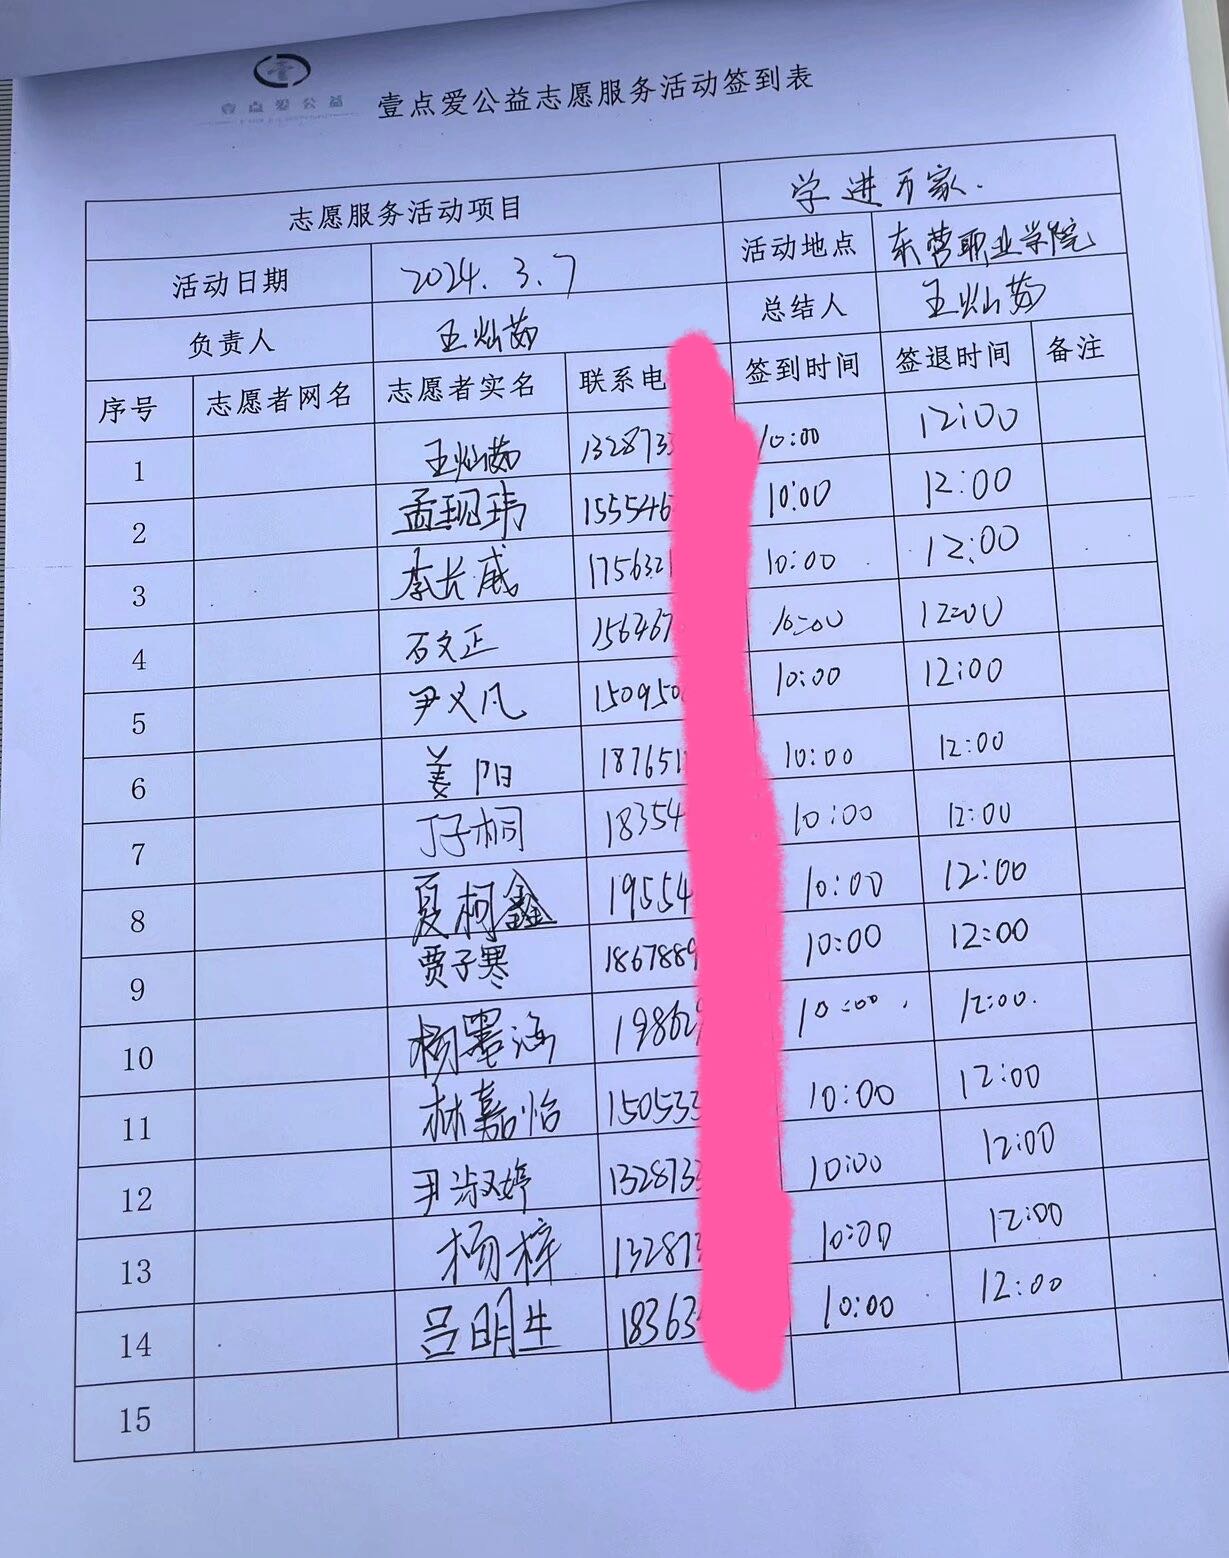 壹点爱公益
壹点爱公益志愿服务活动签到表
志愿服务活动项目 学进万家.
活动日期 2024.3.7 活动地点 东营职业学院
负责人 王灿茹 总结人 王灿茹
序号 志愿者网名 志愿者实名 联系电 签到时间 签退时间 备注
1 王灿茹 1328733 10:00 12:00
2 孟现玮 155546 10:00 12:00
3 李长威 1756321 10:00 12:00
4 石文正 156467 10:00 12:00
5 尹义凡 150950 10:00 12:00
6 姜阳 187651 10:00 12:00
7 丁子桐 18354 10:00 12:00
8 夏柯鑫 19554 10:00 12:00
9 贾子寒 1867889 10:00 12:00
10 杨墨涵 19862 10:00 12:00.
11 林嘉怡 150533 10:00 12:00
12 尹淑婷 132873 10:00 12:00
13 杨梓 13287 10:00 12:00
14 吕明生 18363 10:00 12:00
15